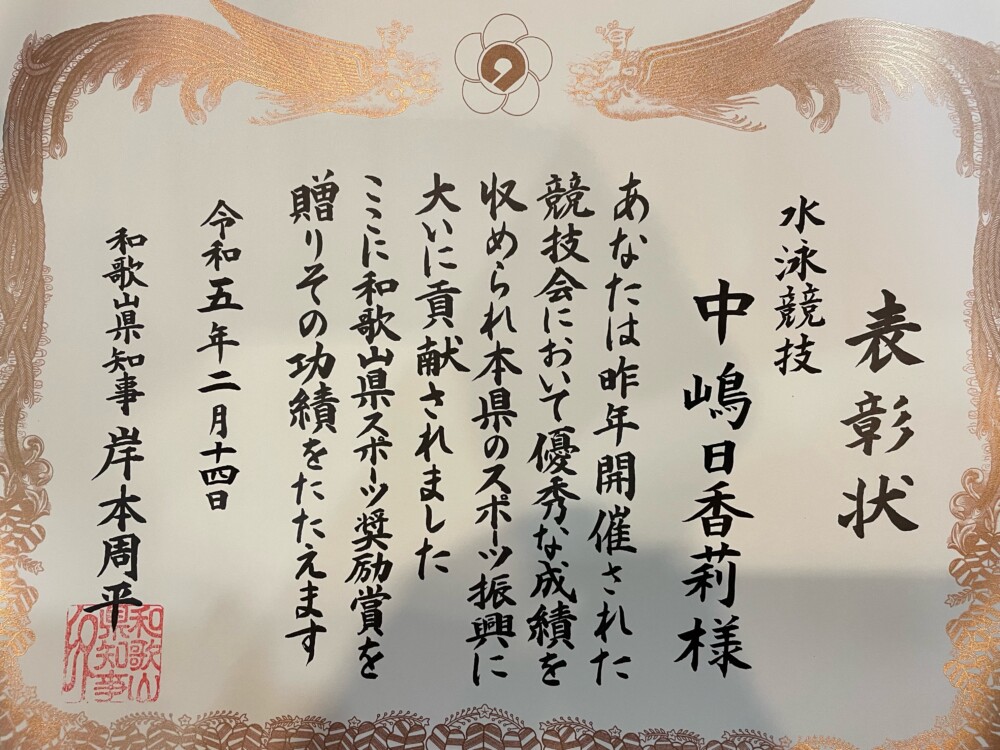 表彰状
水泳競技
中嶋日香莉様
あなたは昨年開催された
競技会において優秀な成績を
収められ本県のスポーツ振興に
大いに貢献されました
ここに和歌山県スポーツ奨励賞を
贈りその功績をたたえます
令和五年二月十四日
和歌山県知事 岸本周平
和歌山
県知事
印